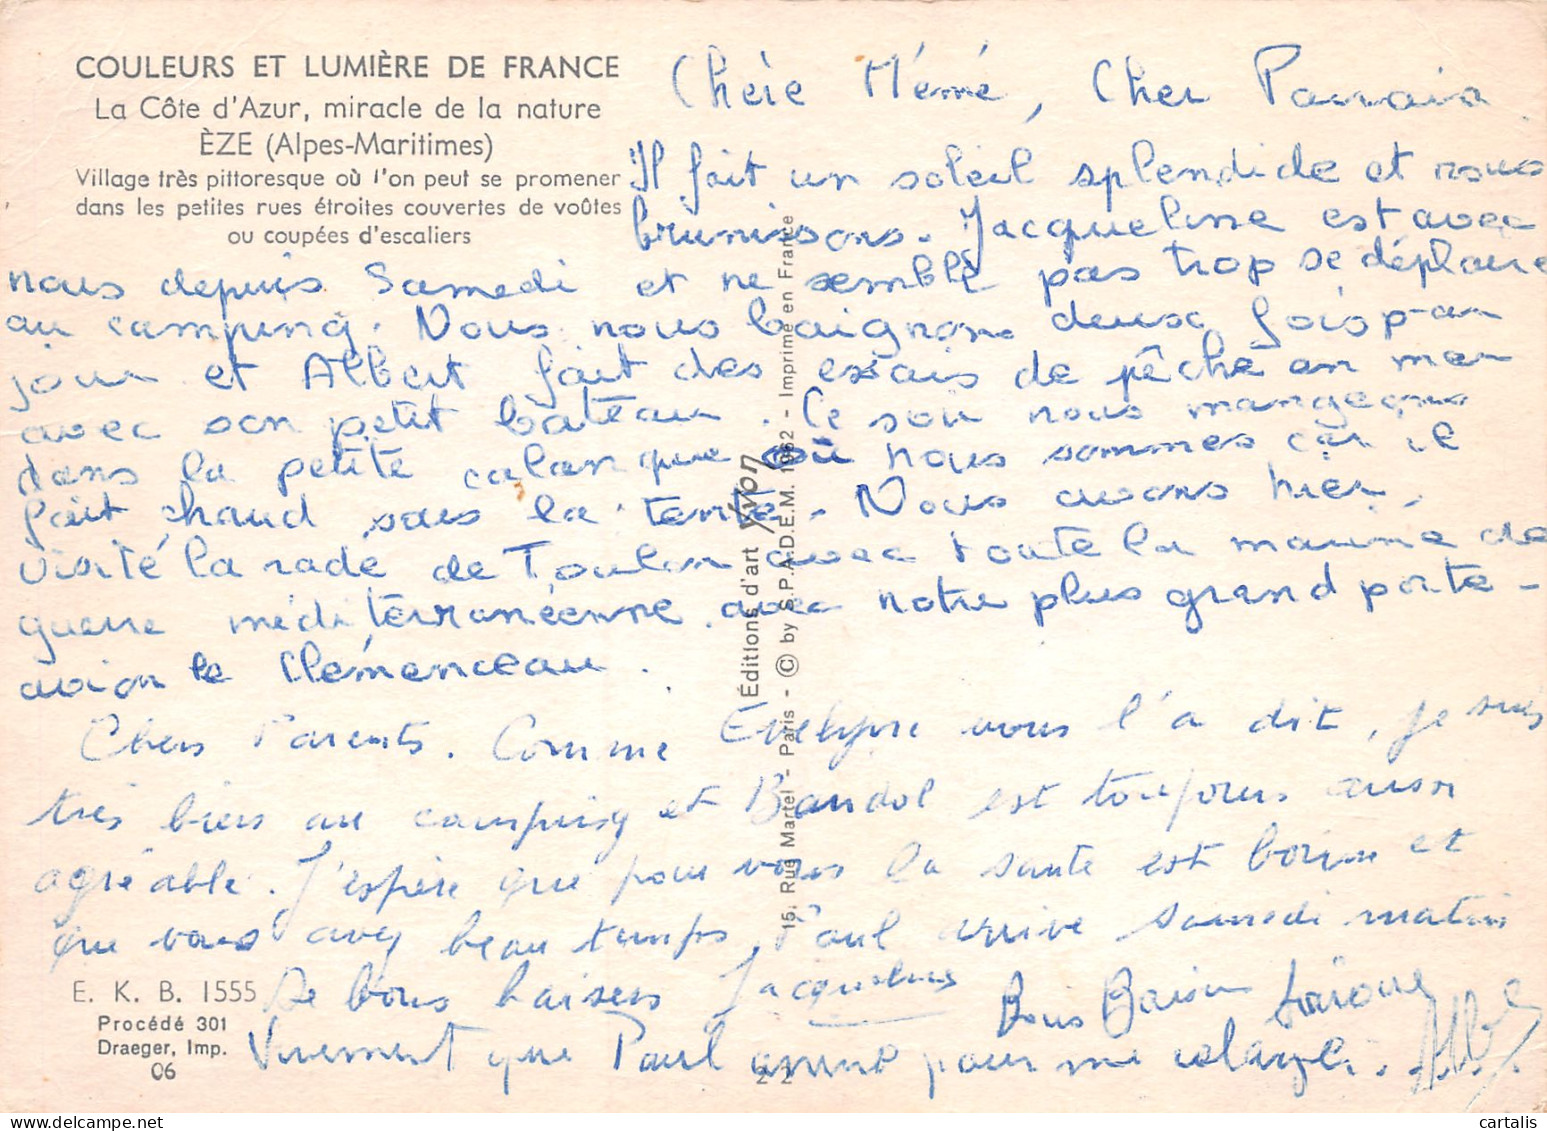 COULEURS ET LUMIÈRE DE FRANCE
La Côte d'Azur, miracle de la nature
ÈZE (Alpes-Maritimes)
Village très pittoresque où l'on peut se promener
dans les petites rues étroites couvertes de voûtes
ou coupées d'escaliers
Chère Mémé, Cher Parrain
Il fait un soleil splendide et nous
brunissons. Jacqueline est avec
nous depuis Samedi et ne semble pas trop se déplaire
au camping. Nous nous baignons deux fois par
jour et Albert fait des essais de pêche en mer
avec son petit bateau. Ce soir nous mangeons
dans la petite calanque où nous sommes car il
fait chaud sous la tente. Nous avons hier
visité la rade de Toulon avec toute la marine de
guerre méditerranéenne avec notre plus grand porte-
avion le Clémenceau.
Chers Parents. Comme Evelyne vous l'a dit, je suis
très bien au camping et Bandol est toujours aussi
agréable. J'espère que pour vous la santé est bonne et
que vous avez beau temps, Paul arrive samedi matin
De bons baisers Jacqueline
Bons Baisers
Vivement que Paul arrive pour me
Albert
E. K. B. 1555
Procédé 301
Draeger, Imp.
06
Éditions d'art Yvon
15, Rue Martel - Paris - © by S.P.A.D.E.M. 1962 - Imprimé en France
cartalis